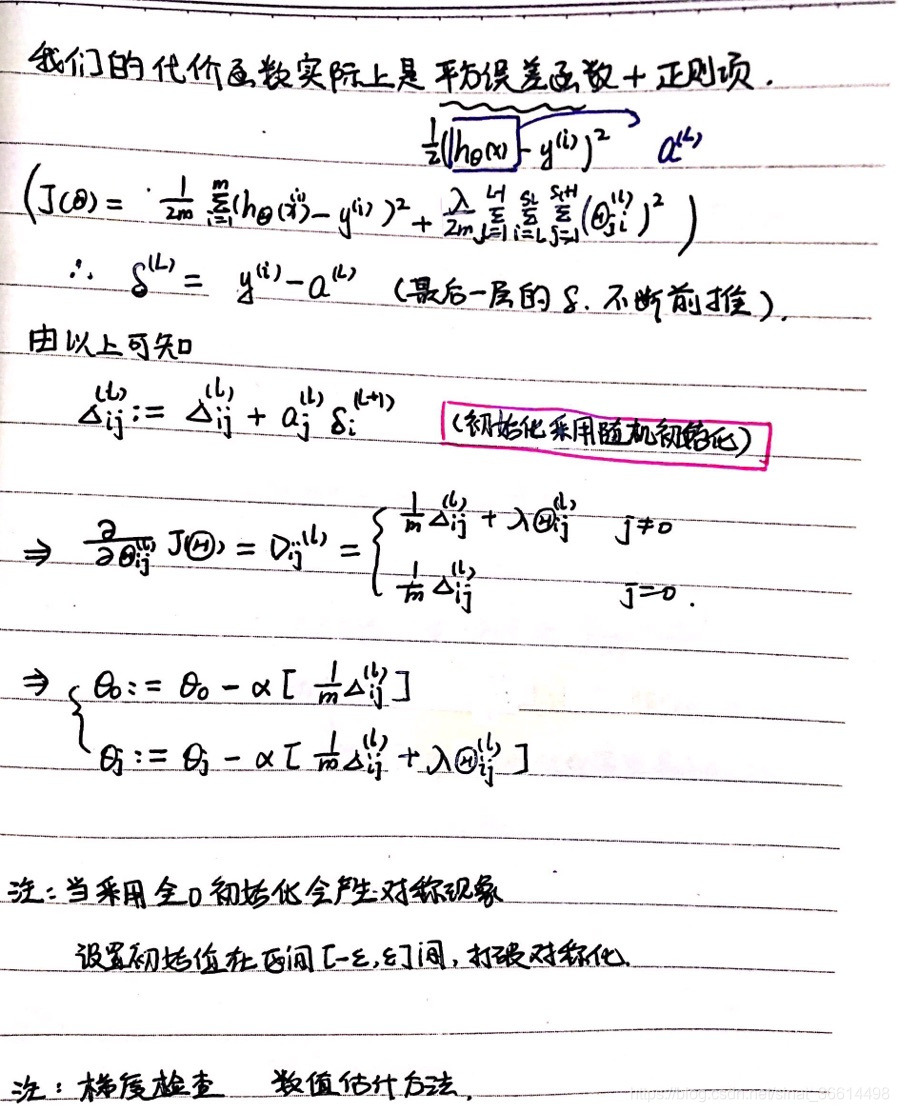 我们的代价函数实际上是平方误差函数+正则项.
½(h_θ(x) - y^(i))² a^(L)
(J(θ) = 1/2m Σ_{i=1}^{m} (h_θ(x^(i)) - y^(i))² + λ/2m Σ_{l=1}^{L-1} Σ_{i=1}^{s_l} Σ_{j=1}^{s_l+1} (Θ_{ji}^(l))²)
∴ δ^(L) = y^(i) - a^(L) (最后一层的δ. 不断前推).
由以上可知
Δ_{ij}^(l) := Δ_{ij}^(l) + a_j^(l) δ_i^(l+1) (初始化采用随机初始化)
⇒ ∂/∂Θ_{ij}^(l) J(Θ) = D_{ij}^(l) = { 1/m Δ_{ij}^(l) + λΘ_{ij}^(l) j≠0
1/m Δ_{ij}^(l) j=0.
⇒ { θ_0 := θ_0 - α[1/m Δ_{ij}^(l)]
θ_j := θ_j - α[1/m Δ_{ij}^(l) + λΘ_{ij}^(l)]
注:当采用全0初始化会产生对称现象
设置初始值在区间[-ε,ε]间,打破对称化.
注:梯度检查 数值估计方法.